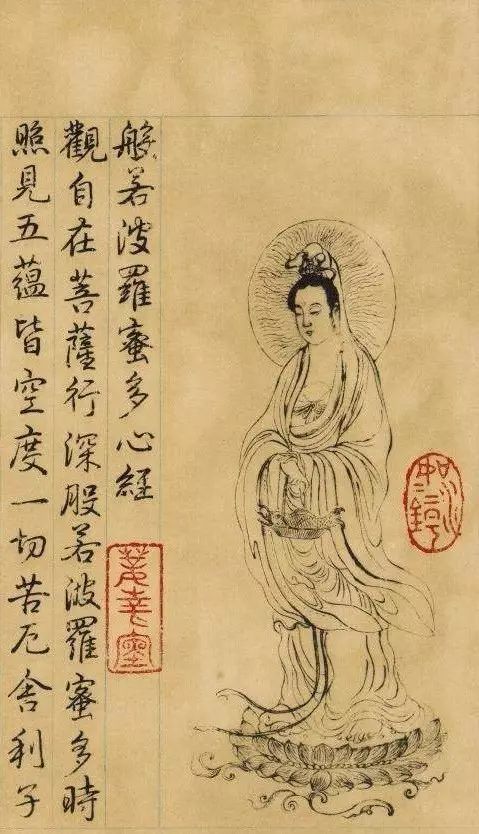 般若波羅蜜多心經
觀自在菩薩行深般若波羅蜜多時
照見五蘊皆空度一切苦厄舍利子